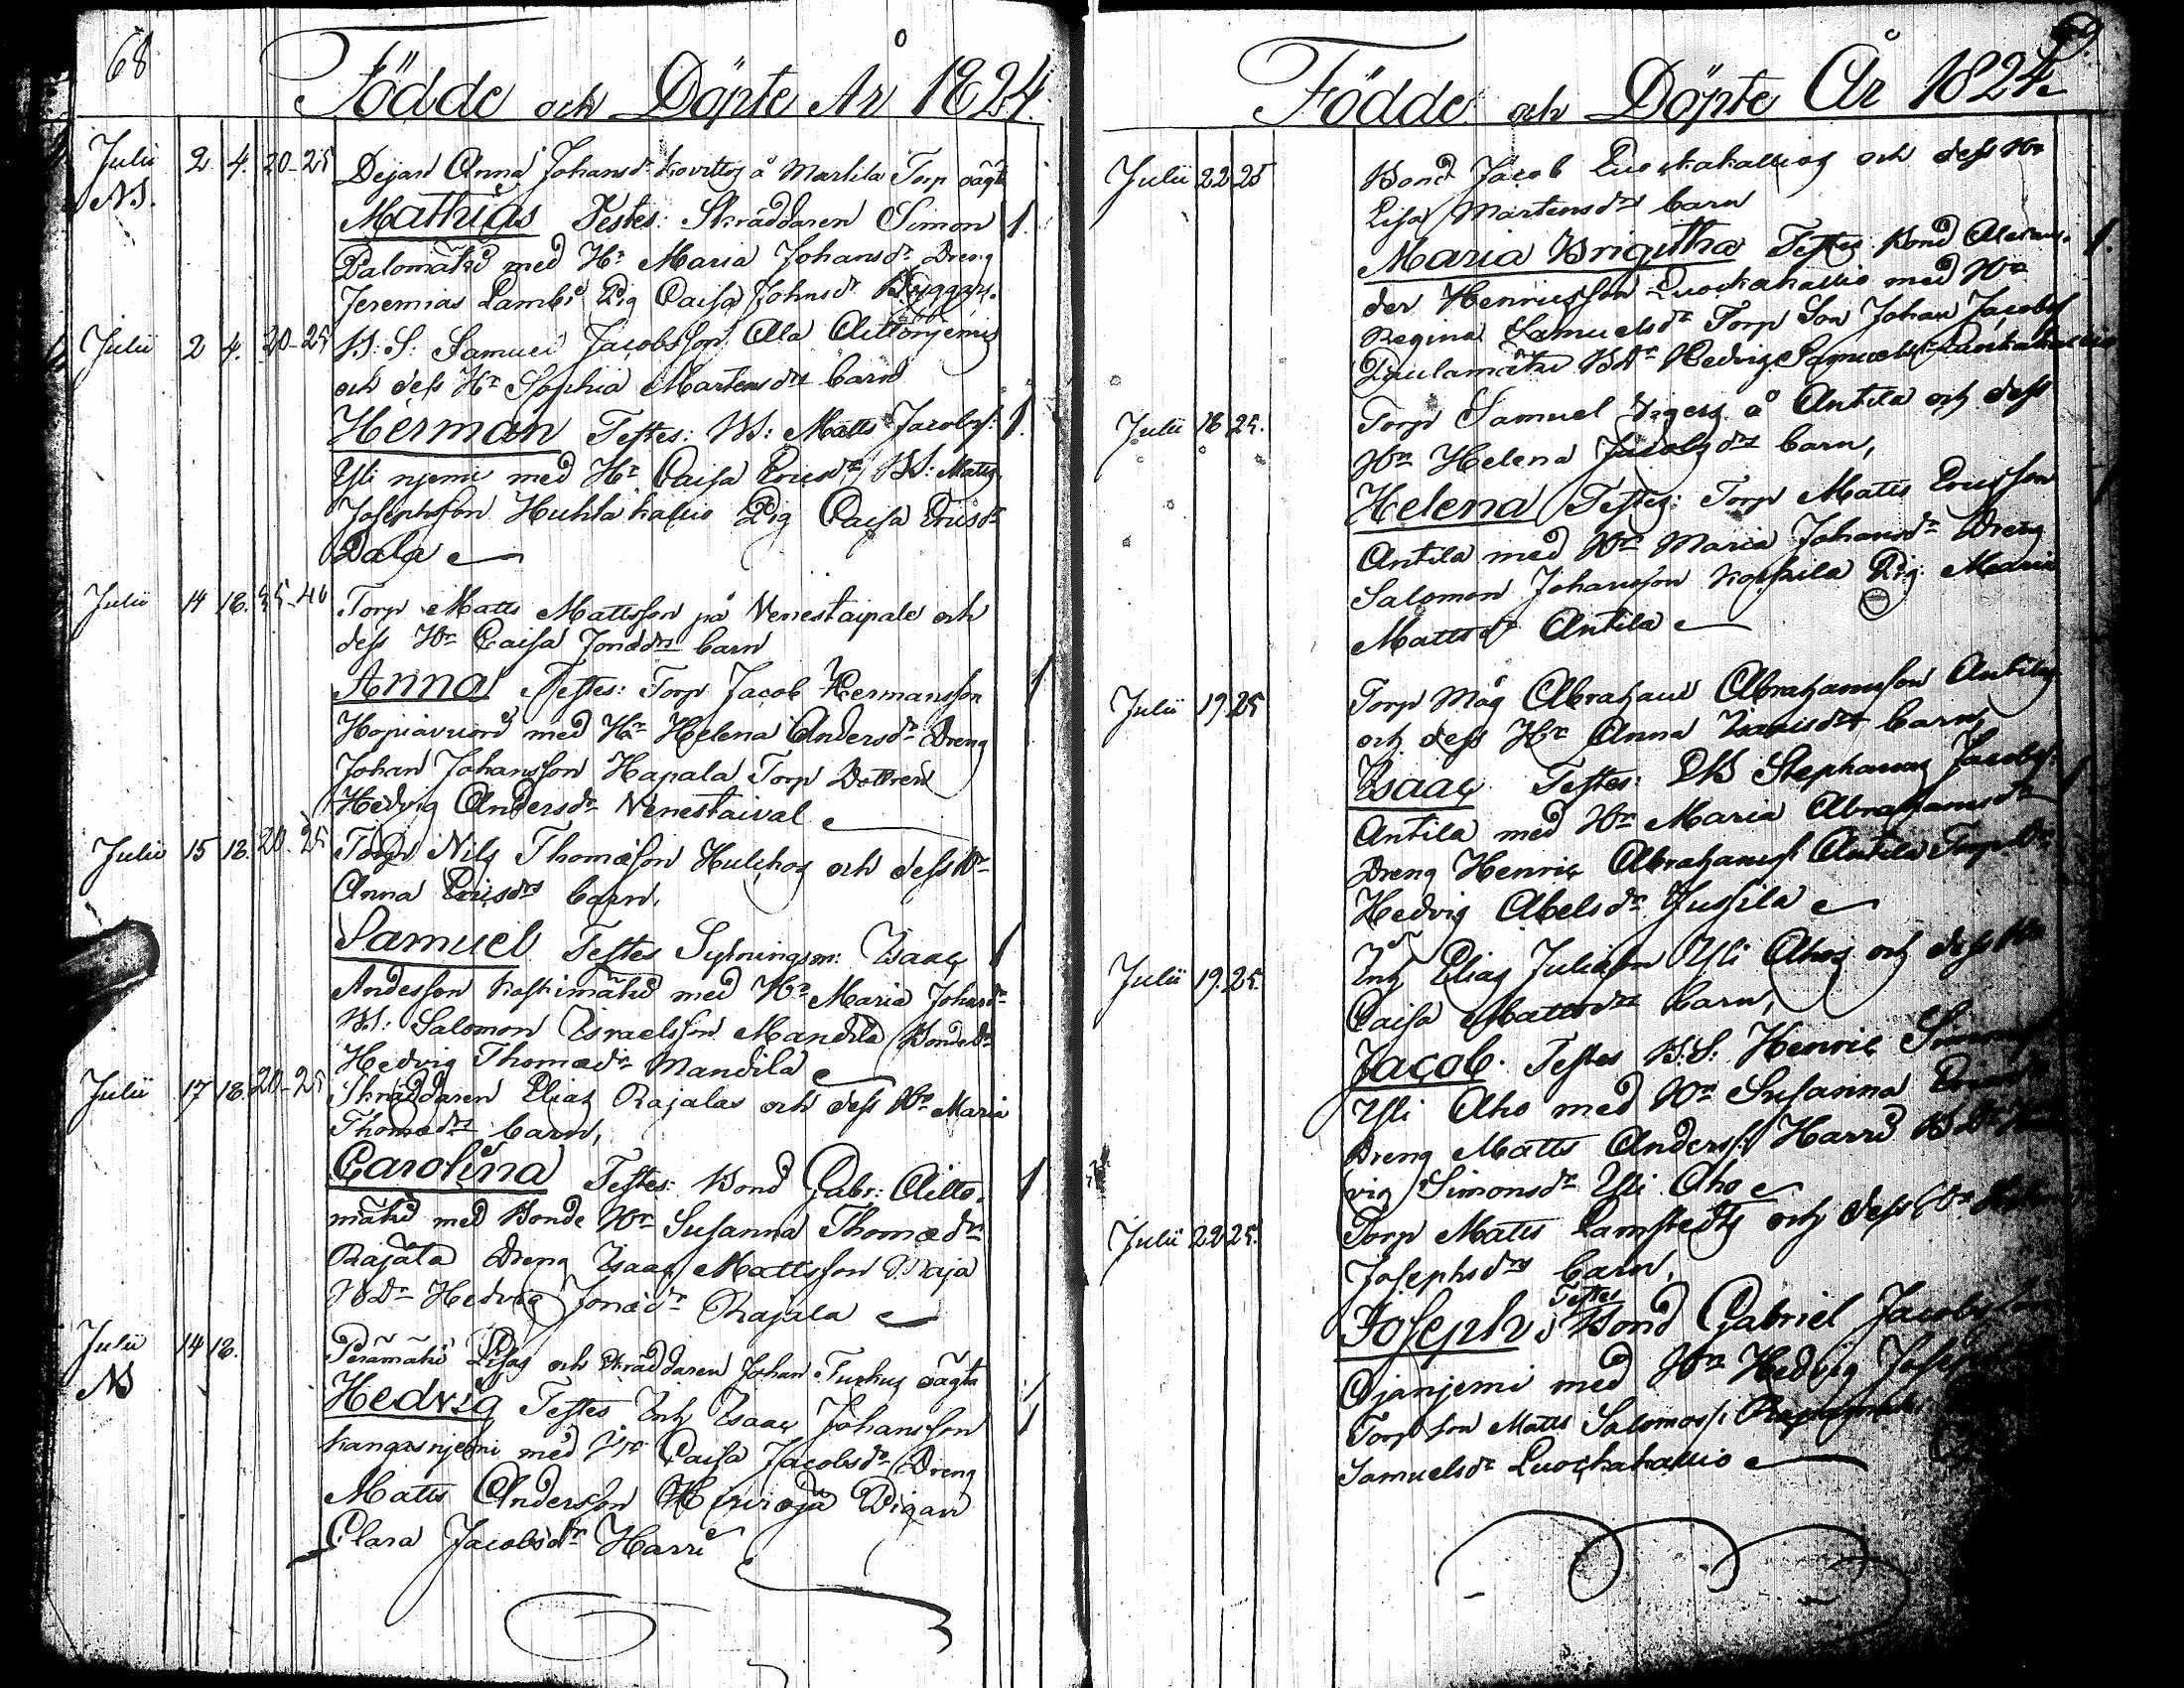 68
Födde och Döpte År 1824.
Julii 2 4. 20-25 Pejan Anna Johansdr å Markila Torp oägta
NB. Mathias Testes: Skräddaren Simon 1.
Palomäki med Hr Maria Johansdr Dreng
Jeremias Lambi Pig Caisa Johnsdr
Julii 2 4. 20-25 B: S: Samuel Jacobsson Ala
och dess Hr Sophia Martensdrs barn
Herman Testes: B: Matts Jacobss: 1.
Yli njemi med Hr Caisa Ericsdr BS: Matts
Josephsson Huhtakallio Pig Caisa Ericsdr
Pala
Julii 14 18. 35-40 Torp Matts Mattsson på Venestaipale och
dess Hr Caisa Jonædrs barn
Anna Testes: Torp Jacob Hermansson 1
Hopiavuori med Hr Helena Andersdr Dreng
Johan Johansson Hapala Torp Dottren
Hedvig Andersdr Venestaival
Julii 15 18. 20-25 Torp Nils Thomæson Hulchos och dess Hr
Anna Ericsdrs barn,
Samuel Testes Sytningsm: Isaac 1
Andersson Koskimäki med Hr Maria Johansdr
BS: Salomon Israelsson Mandila Bondedr
Hedvig Thomædr Mandila
Julii 17 18. 20-25 Skräddaren Elias Rajalas och dess Hr Maria
Thomædrs barn,
Carolina Testes: Bond Gabr: Aitto- 1
mäki med Bonde Hr Susanna Thomædr
Rajala Dreng Isaac Mattsson
BDr Hedvig Jonædr Rajala
Julii 14 18. Perämäki Lisas och Skräddaren Johan Turkus oägta
NB Hedvig Testes Inh Isaac Johansson 1
Kangasnjemi med Hr Caisa Jacobsdr Dreng
Matts Andersson Pigan
Clara Jacobsdr Harri
Födde och Döpte År 1824.
Julii 22 25 Bond Jacob Luockakallios och dess Hr
Lisa Martensdrs barn
Maria Brigitha Testes Bond Alexan- 1.
der Henricsson Luockakallio med Hr
Regina Samuelsdr Torp Son Johan Jacobss
Paulamäki BDr Hedvig Samuelsdr Luockakallio
Julii 18 25. Torp Samuel å Antila och dess
Hr Helena Jacobsdrs barn,
Helena Testes: Torp Matts Ericsson 1
Antila med Hr Maria Johansdr Dreng
Salomon Johansson Koskila Pig: Maria
Mattsdr Antila
Julii 19 25 Torp Måg Abraham Abrahamsson Antilas
och dess Hr Anna Isacsdrs barn
Isaac Testes: Stephanus Jacobss: 1
Antila med Hr Maria Abrahamsdr
Dreng Henric Abrahamss: Antila Torp Dr
Hedvig Abelsdr Jussila
Julii 19. 25. Inh Elias Juliasson Yli Ahos och dess Hr
Caisa Mattsdrs barn,
Jacob. Testes B.S: Henric
Yli Aho med Hr Susanna
Dreng Matts Anderss: Harri
vig Simonsdr Yli Aho
Julii 22 25. Torp Matts Lamstedts och dess Hr
Josephsdrs barn,
Testes
Joseph Bond Gabriel Jacobsson
Ojanjemi med Hr Hedvig
Torp Son Matts Salomoss:
Samuelsdr Luockakallio